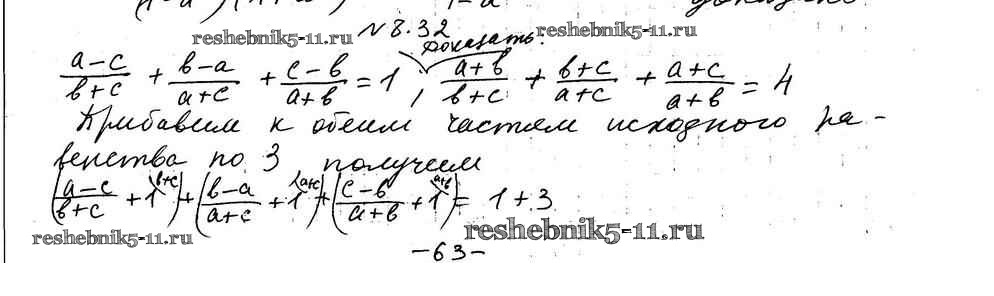 № 8.32
reshebnik5-11.ru доказать: reshebnik5-11.ru
(a-c)/(b+c) + (b-a)/(a+c) + (c-b)/(a+b) = 1, (a+b)/(b+c) + (b+c)/(a+c) + (a+c)/(a+b) = 4
Прибавим к обеим частям исходного ра-
венства по 3 получим
((a-c)/(b+c) + 1^(b+c)) + ((b-a)/(a+c) + 1^(a+c)) + ((c-b)/(a+b) + 1^(a+b)) = 1 + 3
reshebnik5-11.ru reshebnik5-11.ru
-63-